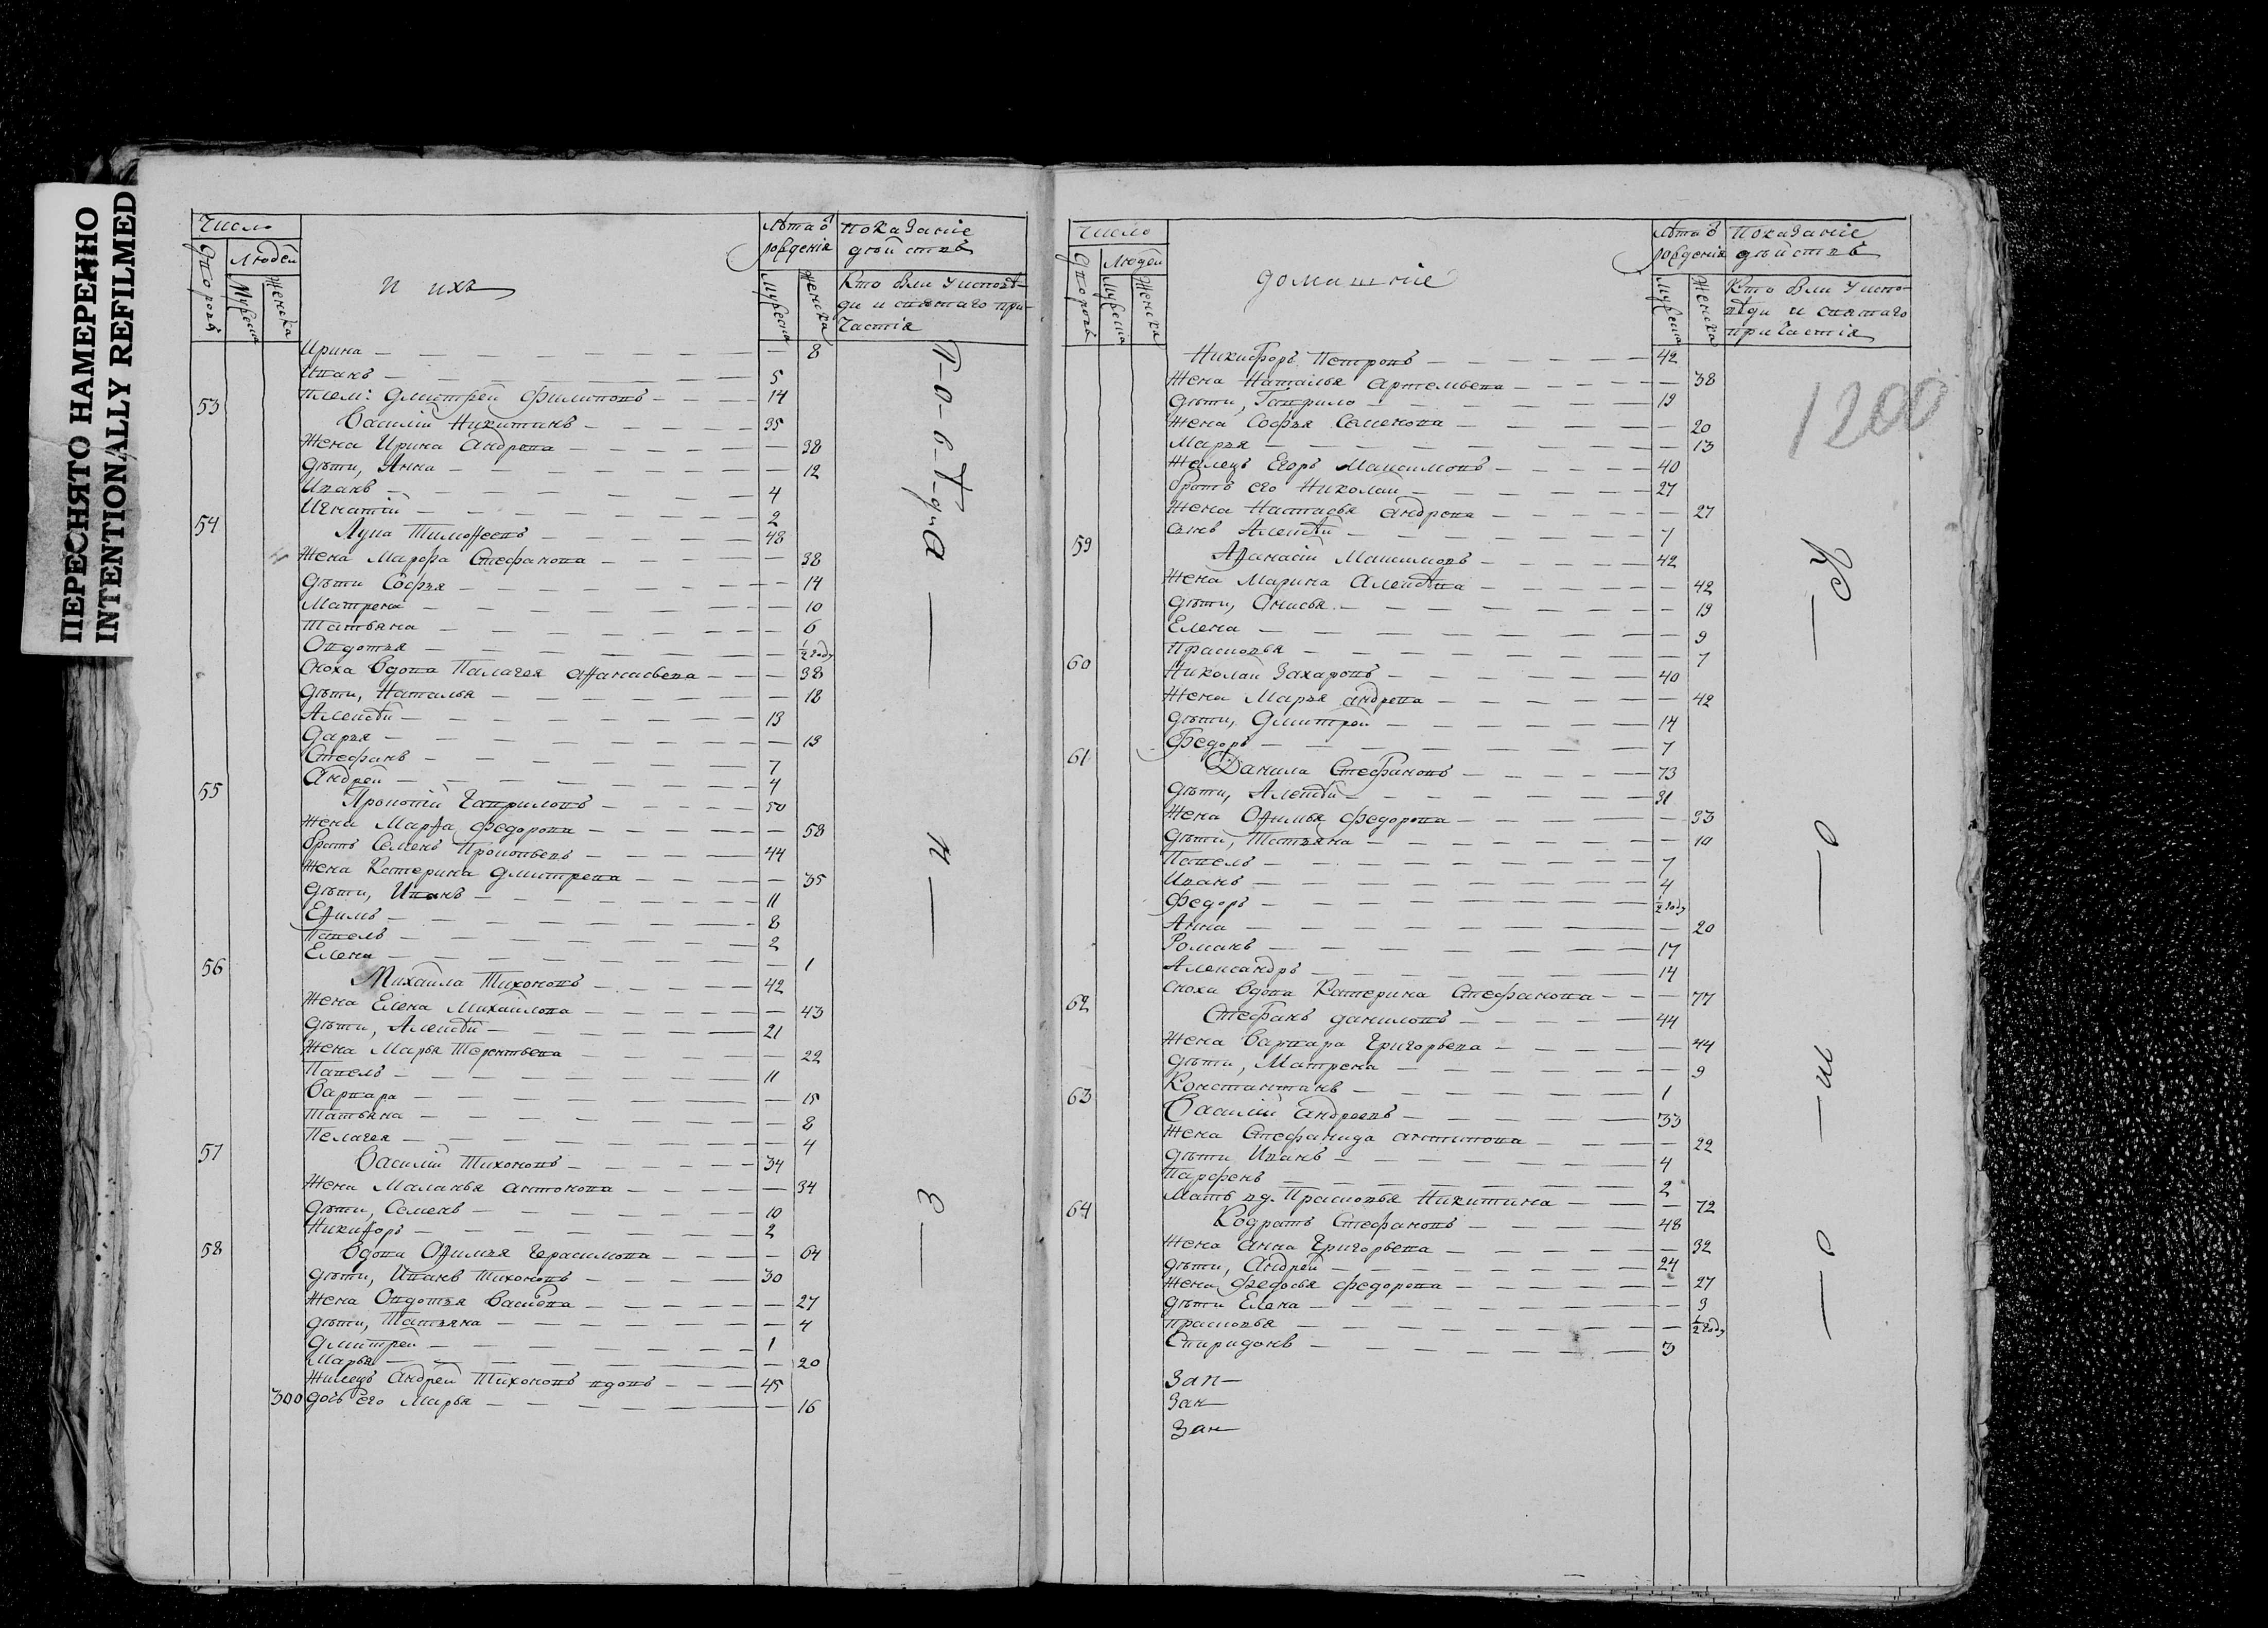 ПЕРЕСНЯТО НАМЕРЕННО
INTENTIONALLY REFILMED
Число
Дворовъ
Людей
Мужеска
Женска
и ихъ
Лѣта ѿ рожденія
Мужеска
Женска
показаніе дѣйствъ
Кто был у исповѣ-
ди и святаго при-
частія
Ирина 8
Иванъ 5
плем: Дмитрей Филиповъ 14
53 Василій Никитинъ 35
Жена Ирина Андрева 38
Дѣти, Анна 12
Иванъ 4
Игнатій 2
54 Лупа Тимоѳеевъ 48
Жена Марфа Стефанова 38
Дѣти Софья 14
Матрена 10
Татьяна 6
Овдотья 1/2 году
Сноха вдова Палагея Аѳанасьева 38
Дѣти, Наталья 18
Алексѣй 13
Дарья 13
Стефанъ 7
Андрей 4
55 Прокопій Гавриловъ 50
Жена Марѳа Федорова 58
Братъ Семенъ Прокопьевъ 44
Жена Катерина Дмитрева 35
Дѣти, Иванъ 11
Еѳимъ 8
Павелъ 2
Елена 1
56 Михайла Тихоновъ 42
Жена Елена Михайлова 43
Дѣти, Алексѣй 21
Жена Марья Терентьева 22
Павелъ 11
Варвара 15
Татьяна 8
Пелагея 4
57 Василій Тихоновъ 34
Жена Маланья Антонова 34
Дѣти, Семенъ 10
Никиѳоръ 2
58 Вдова Оѳимья Герасимова 64
Дѣти, Иванъ Тихоновъ 30
Жена Овдотья Васильева 27
Дѣти, Татьяна 4
Дмитрей 1
Марья 20
Жилецъ Андрей Тихоновъ вдовъ 45
300 дочь его Марья 16
Число
Дворовъ
Людей
Мужеска
Женска
домашніе
Лѣта ѿ рожденія
Мужеска
Женска
Показаніе дѣйствъ
Кто был у испо-
вѣди и святаго
причастія
1200
Никифоръ Петровъ 42
Жена Наталья Артемьева 38
Дѣти, Гаврило 19
Жена Софья Семенова 20
Марья 13
Жилецъ Егоръ Максимовъ 40
братъ его Николай 27
Жена Настасья Андрева 27
сынъ Алексѣй 7
59 Аѳанасій Максимовъ 42
Жена Марина Алексѣева 42
Дѣти, Анисья 19
Елена 9
Прасковья 7
60 Николай Захаровъ 40
Жена Марья Андрева 42
Дѣти, Дмитрей 14
Федоръ 7
61 Данила Стефановъ 73
Дѣти, Алексѣй 31
Жена Оѳимья Федорова 33
Дѣти, Татьяна 10
Павелъ 7
Иванъ 4
Федоръ 1/2 году
Анна 20
Романъ 17
Александръ 14
Сноха вдова Катерина Стефанова 77
62 Стефанъ Даниловъ 44
Жена Варвара Григорьева 44
Дѣти, Матрена 9
Константинъ 1
63 Василій Андреевъ 33
Жена Стефанида Антипова 22
Дѣти Иванъ 4
Парфенъ 2
Мать вд. Прасковья Никитина 72
64 Кодратъ Стефановъ 48
Жена Анна Григорьева 32
Дѣти, Андрей 24
Жена Федосья Федорова 27
Дѣти Елена 3
Прасковья 1/2 году
Спиридонъ 3